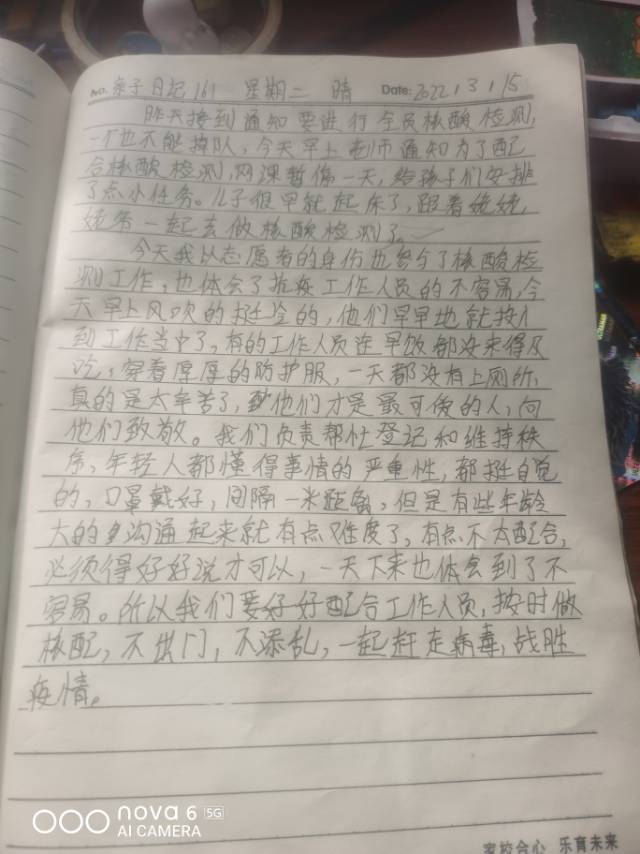 No. 亲子日记161 星期二 晴 Date: 2022.3.15
昨天接到通知要进行全员核酸检测,
一个也不能掉队,今天早上老师通知为了配
合核酸检测,网课暂停一天,给孩子们安排
了点小任务。儿子很早就起床了,跟着姥姥,
姥爷一起去做核酸检测了。
今天我以志愿者的身份也参与了核酸检
测工作,也体会了抗疫工作人员的不容易,今
天早上风吹的挺冷的,他们早早地就投入
到工作当中了,有的工作人员连早饭都没来得及
吃,穿着厚厚的防护服,一天都没有上厕所,
真的是太辛苦了,他们才是最可傲的人,向
他们致敬。我们负责帮忙登记和维持秩
序,年轻人都懂得事情的严重性,都挺自觉
的,口罩戴好,间隔一米距离,但是有些年龄
大的沟通起来就有点难度了,有点不太配合,
必须得好好说才可以,一天下来也体会到了不
容易。所以我们要好好配合工作人员,按时做
核配,不出门,不添乱,一起赶走病毒,战胜
疫情。
nova 6 5G
AI CAMERA
家校合心 乐育未来